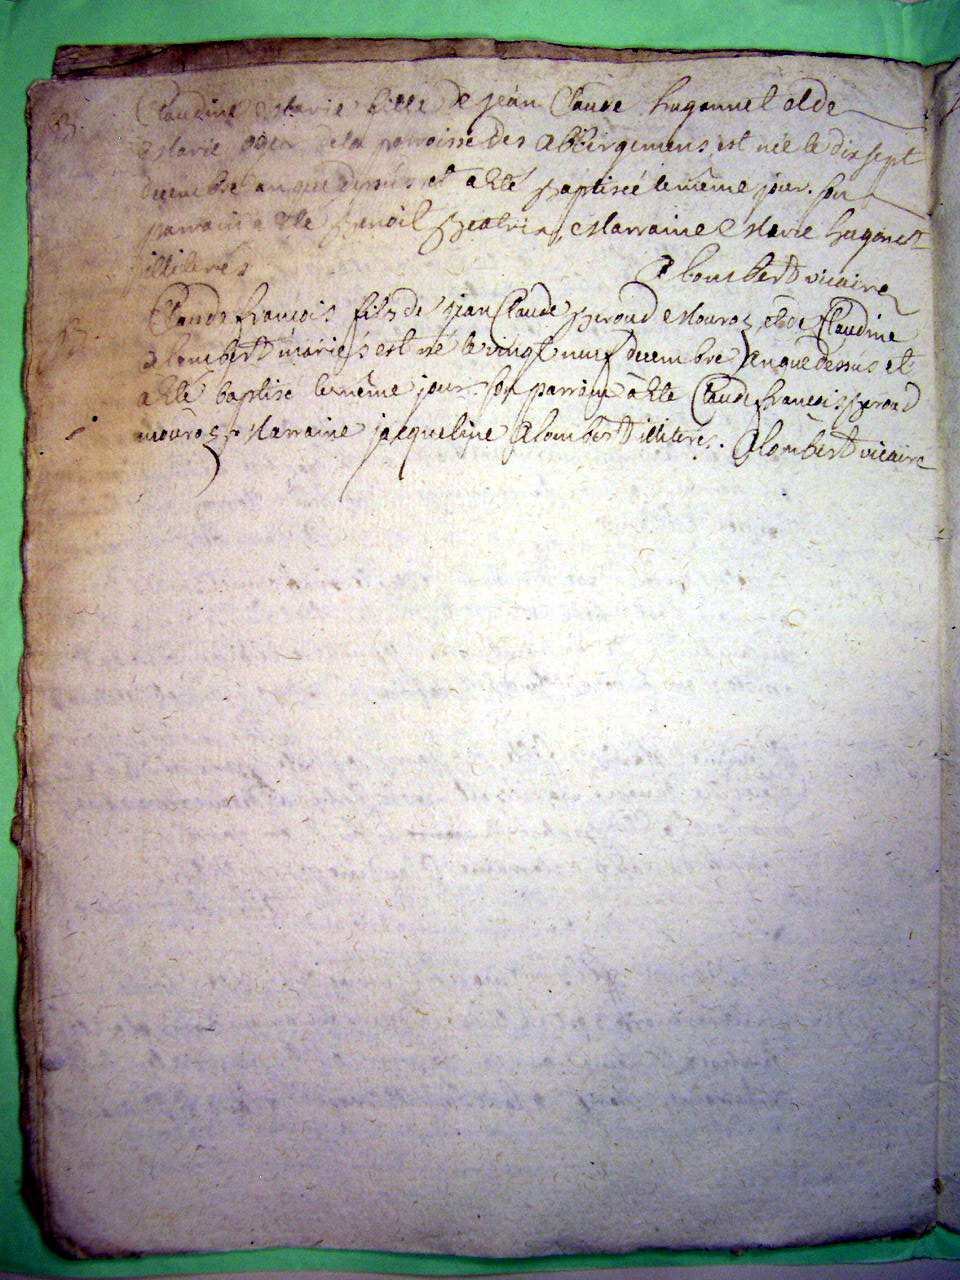 B. Claudine Marie fille de jean Claude hugonnet et de
Marie oger de la parroisse des Abbergemens est née le dix sept
decembre an que dessus et a Eté Baptisée le même jour. son
parrain a Ete Benoit Beatrix, Marraine Marie hugonet
illiteres Alombert vicaire
B. Claude francois fils de jean Claude peroud Mouroz et de Claudine
alombert mariés est né le vingt neuf decembre an que dessus et
a Eté baptisé le même jour. son parrain a Ete Claude francois peroud
mouroz, Marraine jacqueline Alombert illiteres. Alombert vicaire